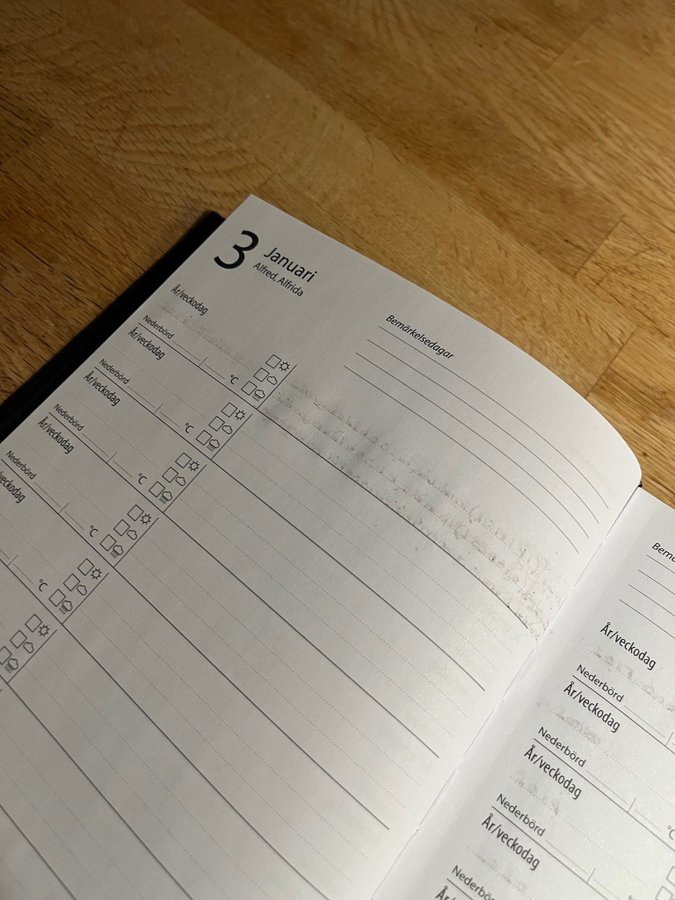 3 Januari
Alfred, Alfrida
Bemärkelsedagar
År/veckodag
Nederbörd
°C
År/veckodag
Nederbörd
°C
År/veckodag
Nederbörd
°C
År/veckodag
Nederbörd
°C
År/veckodag
°C
År/veckodag
Nederbörd
°C
År/veckodag
Nederbörd
År/veckodag
Nederbörd
År/veckodag